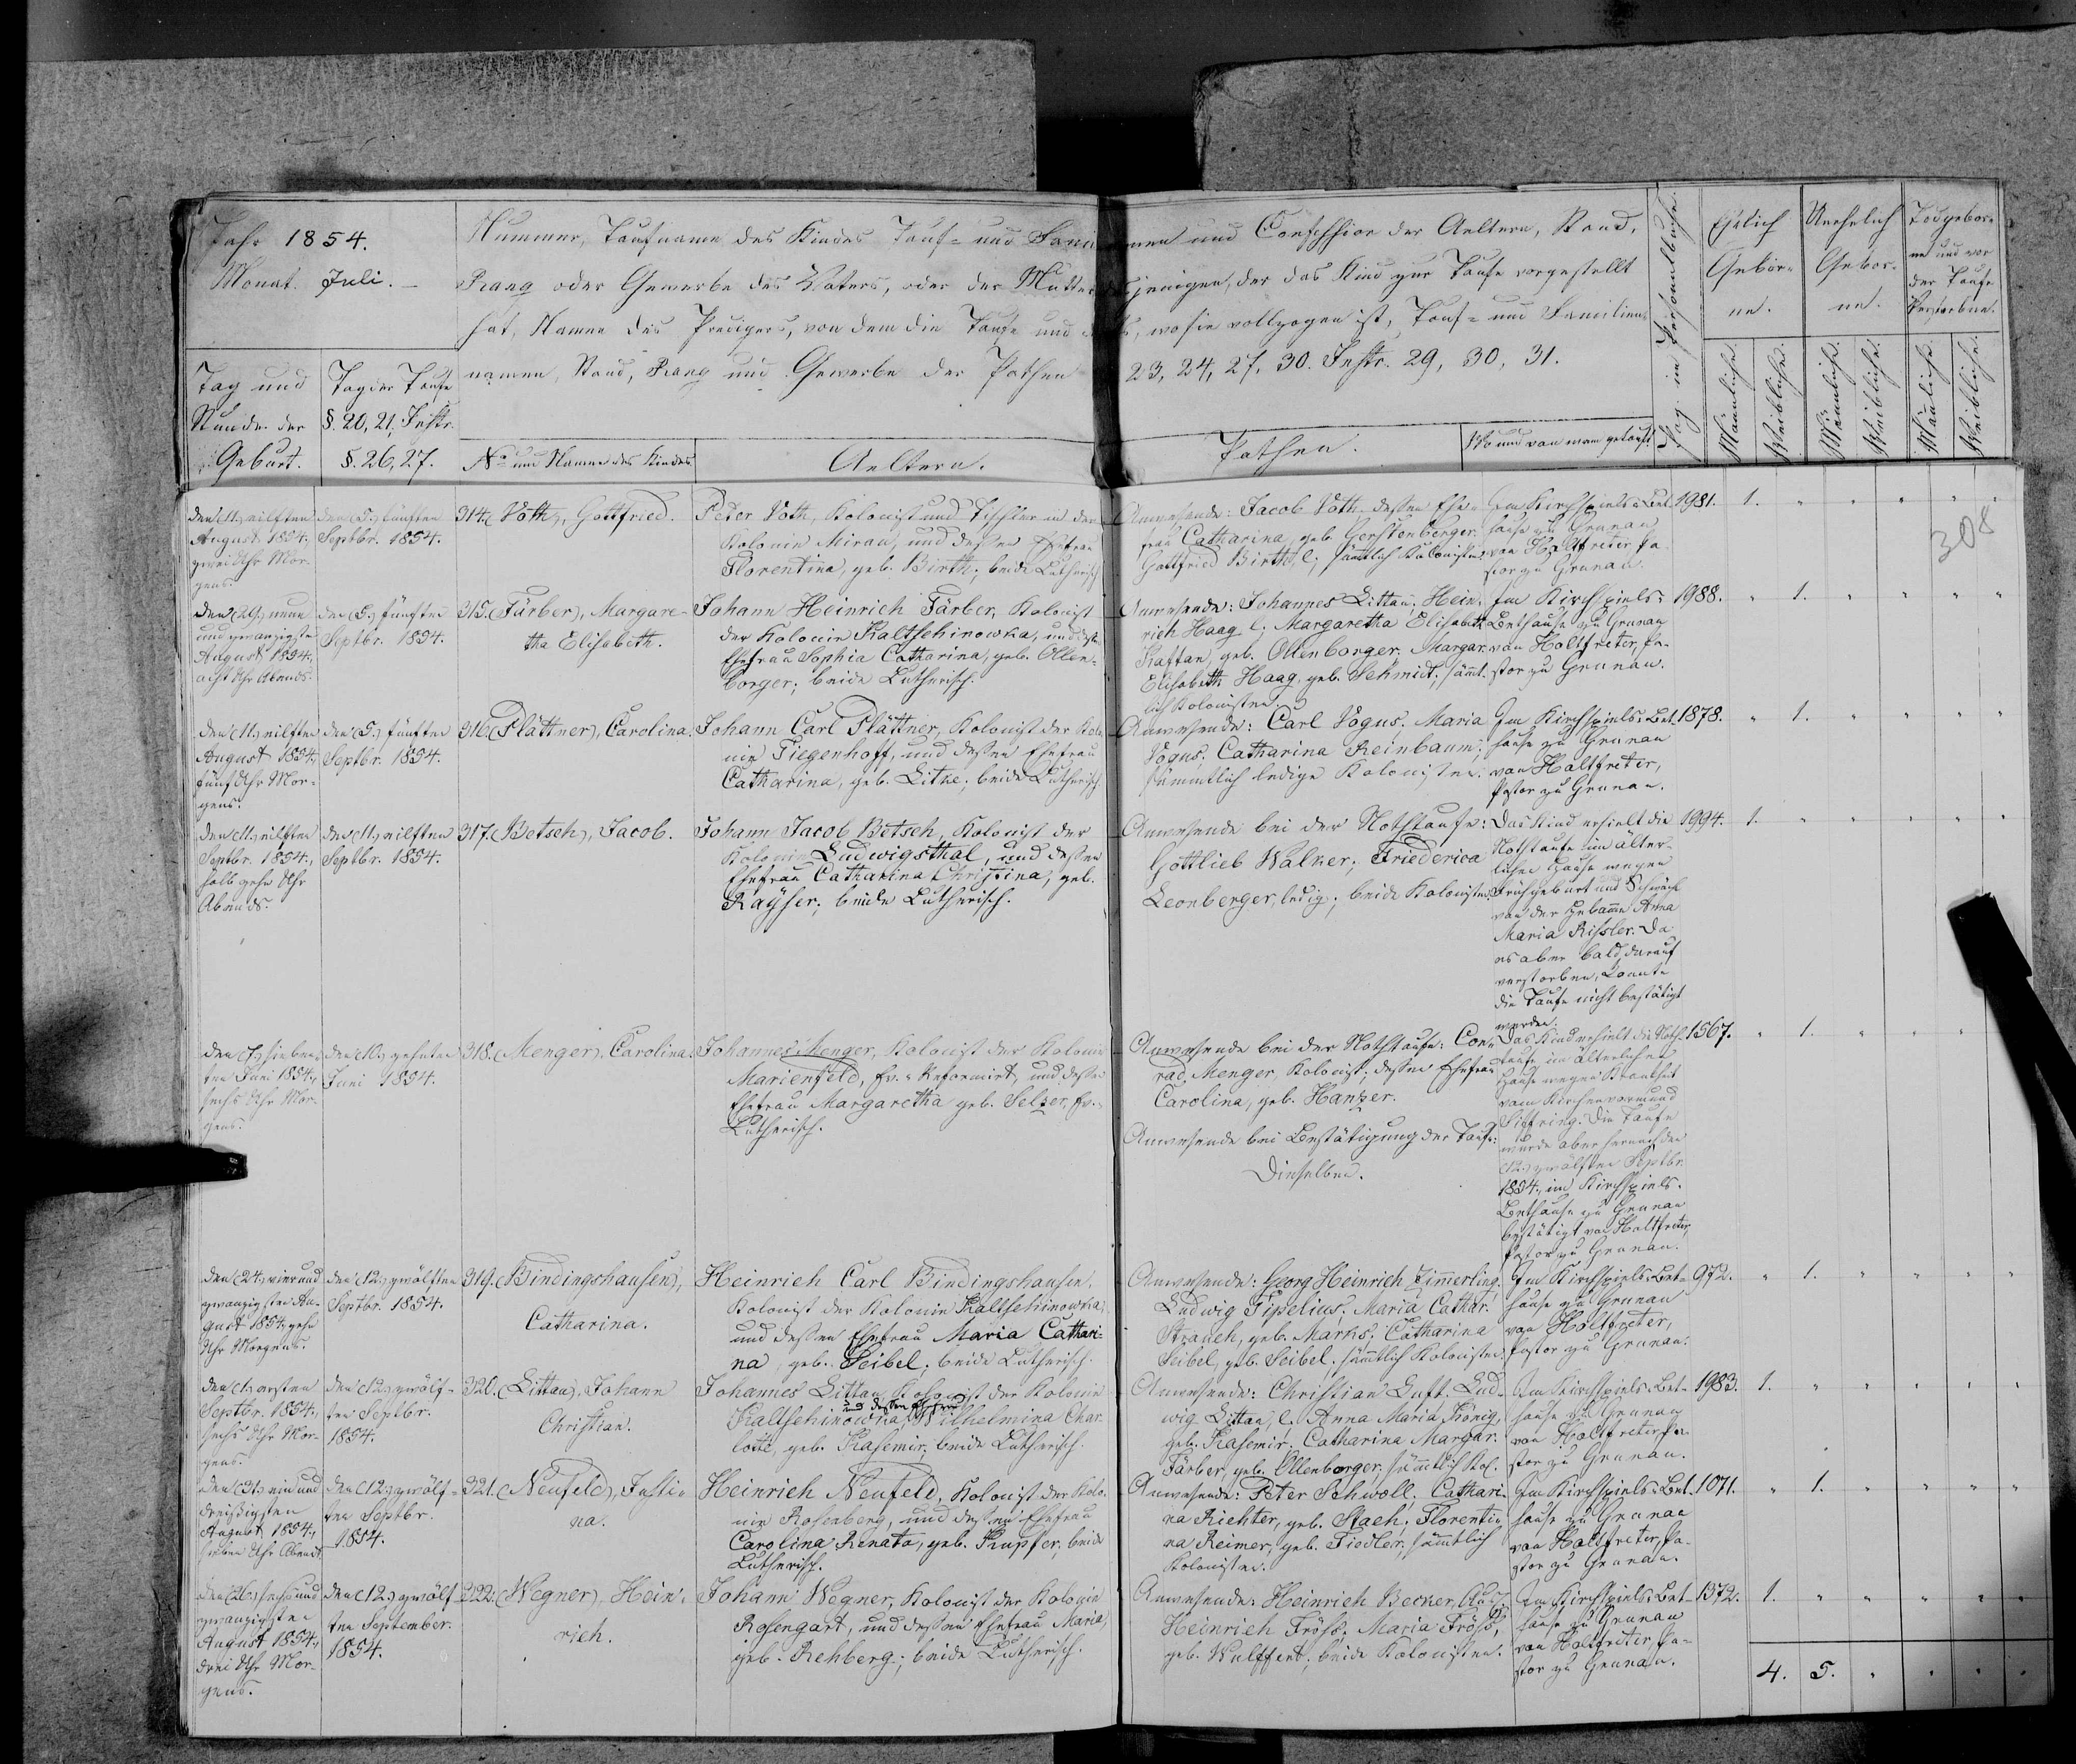 Jahr 1854.
Monat. Juli. —
Nummer, Taufname des Kindes Tauf- und Fami
Rang oder Gewerbe des Vaters, oder der Mutter
hat, Namen des Predigers, von dem die Taufe und
namen, Stand, Rang und Gewerbe der Pathen
Tag und
Stunde der
Geburt.
Tag der Taufe
§. 20, 21, Instr.
§. 26, 27.
No und Name des Kindes
Aeltern.
men und Confession der Aeltern, Stand,
jenigen, der das Kind zur Taufe vorgestellt
wo sie vollzogen ist, Tauf- und Familien-
23, 24, 27, 30. Instr. 29, 30, 31.
Pathen.
Wo und von wem getauft.
Pag. im Personalbuche.
Ehelich
Gebor-
ne.
Unehelich
Gebor-
ne.
Todgebor-
ne und vor
der Taufe
Verstorbene.
Männliche.
Weibliche.
Männliche.
Weibliche.
Männliche.
Weibliche.
308
den (11.) eilften
August 1854.,
zwei Uhr Mor-
gens.
den (5.) fünften
Septbr. 1854.
314. (Voth), Gottfried.
Peter Voth, Kolonist und Tischler in der
Kolonie Mirau, und dessen Ehefrau
Florentina, geb. Birth; beide Lutherisch.
Anwesende: Jacob Voth. dessen Ehe-
frau Catharina, geb. Gerstenberger.
Gottfried Birth, l; sämtlich Kolonisten.
Im Kirchspiels-Bet-
hause zu Grunau
von Holtfreter, Pa-
stor zu Grunau.
1981. 1. " " " " "
den (29.) neun
und zwanzigsten
August 1854.,
acht Uhr Abends.
den (5.) fünften
Septbr. 1854.
315. (Färber), Margare-
tha Elisabeth.
Johann Heinrich Färber, Kolonist
der Kolonie Kaltschinowka, und dessen
Ehefrau Sophia Catharina, geb. Ollen-
borger; beide Lutherisch.
Anwesende: Johannes Littau; Hein-
rich Haag l; Margaretha Elisabeth
Kaftan, geb. Ollenborger. Margar.
Elisabeth Haag, geb. Schmidt; sämt-
lich Kolonisten.
Im Kirchspiels-
Bethause zu Grunau
von Holtfreter, Pa-
stor zu Grunau.
1988. " 1. " " " "
den (11.) eilften
August 1854.,
fünf Uhr Mor-
gens.
den (5.) fünften
Septbr. 1854.
316. (Plättner), Carolina.
Johann Carl Plättner, Kolonist der Kolo-
nie Tiegenhoff, und dessen Ehefrau
Catharina, geb. Litke; beide Lutherisch.
Anwesende: Carl Vogus. Maria
Vogus. Catharina Reinbaum;
sämmtlich ledige Kolonisten.
Im Kirchspiels-Bet-
hause zu Grunau
von Holtfreter,
Pastor zu Grunau.
1878. " 1. " " " "
den (11.) eilften
Septbr. 1854.,
halb zehn Uhr
Abends.
den (11.) eilften
Septbr. 1854.
317. (Betsch), Jacob.
Johann Jacob Betsch, Kolonist der
Kolonie Ludwigsthal, und dessen
Ehefrau Catharina Christina, geb.
Kayser; beide Lutherisch.
Anwesende bei der Nothtaufe:
Gottlieb Walker; Friederica
Leonberger, ledig; beide Kolonisten.
Das Kind erhielt die
Nothtaufe im älter-
lichen Hause wegen
Frühgeburt und Schwäche
von der Hebamme Anna
Maria Rissler. Da
es aber bald darauf
verstorben, konnte
die Taufe nicht bestätigt
werden.
1994. 1. " " " " "
den (7.) sieben-
ten Juni 1854.,
sechs Uhr Mor-
gens.
den (10.) zehnten
Juni 1854.
318. (Menger), Carolina.
Johannes Menger, Kolonist der Kolonie
Marienfeld, Ev.-Reformirt, und dessen
Ehefrau Margaretha geb. Selzer, Ev.-
Lutherisch.
Anwesende bei der Nothtaufe: Con-
rad Menger, Kolonist; dessen Ehefrau
Carolina, geb. Hanzer.
Anwesende bei Bestätigung der Taufe:
Dieselben.
Das Kind erhielt die Noth-
taufe im älterlichen
Hause wegen Krankheit
vom Kirchenvormund
Siffring. Die Taufe
wurde aber hernach den
(12.) zwölften Septbr.
1854., im Kirchspiels-
Bethause zu Grunau
bestätigt von Holtfreter,
Pastor zu Grunau.
1567. " 1. " " "
den (24.) vierund
zwanzigsten Au-
gust 1854., zehn
Uhr Morgens.
den (12.) zwölften
Septbr. 1854.
319. (Bindingshausen),
Catharina.
Heinrich Carl Bindingshausen,
Kolonist der Kolonie Kaltschinowka,
und dessen Ehefrau Maria Cathari-
na, geb. Seibel; beide Lutherisch.
Anwesende: Georg Heinrich Zimmerling.
Ludwig Sipelius; Maria Cathar.
Strauch, geb. Marks; Catharina
Seibel, geb. Seibel; sämtlich Kolonisten.
Im Kirchspiels-Bet-
hause zu Grunau
von Holtfreter,
Pastor zu Grunau.
972. " 1. " " " "
den (1.) ersten
Septbr. 1854.,
sechs Uhr Mor-
gens.
den (12.) zwölf-
ten Septbr.
1854.
320. (Littau), Johann
Christian.
Johannes Littau, Kolonist der Kolonie
und dessen Ehefrau
Kaltschinowka, Wilhelmina Char-
lotte, geb. Kasemir; beide Lutherisch.
Anwesende: Christian Luft. Lud-
wig Littau, l. Anna Maria König,
geb. Kasemir. Catharina Margar.
Färber, geb. Ollenborger; sämmtlich Kol.
Im Kirchspiels-Bet-
hause zu Grunau
von Holtfreter, Pa-
stor zu Grunau.
1983. 1. " " " " "
den (31.) ein und
dreißigsten
August 1854.,
sieben Uhr Abends.
den (12.) zwölf-
ten Septbr.
1854.
321. (Neufeld), Justi-
na.
Heinrich Neufeld, Kolonist der Kolo-
nie Rosenberg, und dessen Ehefrau
Carolina Renata, geb. Kupfer; beide
Lutherisch.
Anwesende: Peter Schwoll. Cathari-
na Richter, geb. Stach; Florenti-
na Reimer, geb. Fiedler; sämmtlich
Kolonisten.
Im Kirchspiels-Bet-
hause zu Grunau
von Holtfreter, Pa-
stor zu Grunau.
1071. " 1. " " " "
den (26.) sechs und
zwanzigsten
August 1854.,
drei Uhr Mor-
gens.
den (12.) zwölf-
ten September
1854.
322. (Wegner), Hein-
rich.
Johann Wegner, Kolonist der Kolonie
Rosengart, und dessen Ehefrau Maria,
geb. Rehberg; beide Lutherisch.
Anwesende: Heinrich Becker,
Heinrich Fröss. Maria Fröss,
geb. Wulffert; beide Kolonisten.
Im Kirchspiels-Bet-
hause zu Grunau
von Holtfreter, Pa-
stor zu Grunau.
1372. 1. " " " " "
4. 5. " " " "